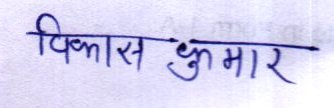 विकास कुमार